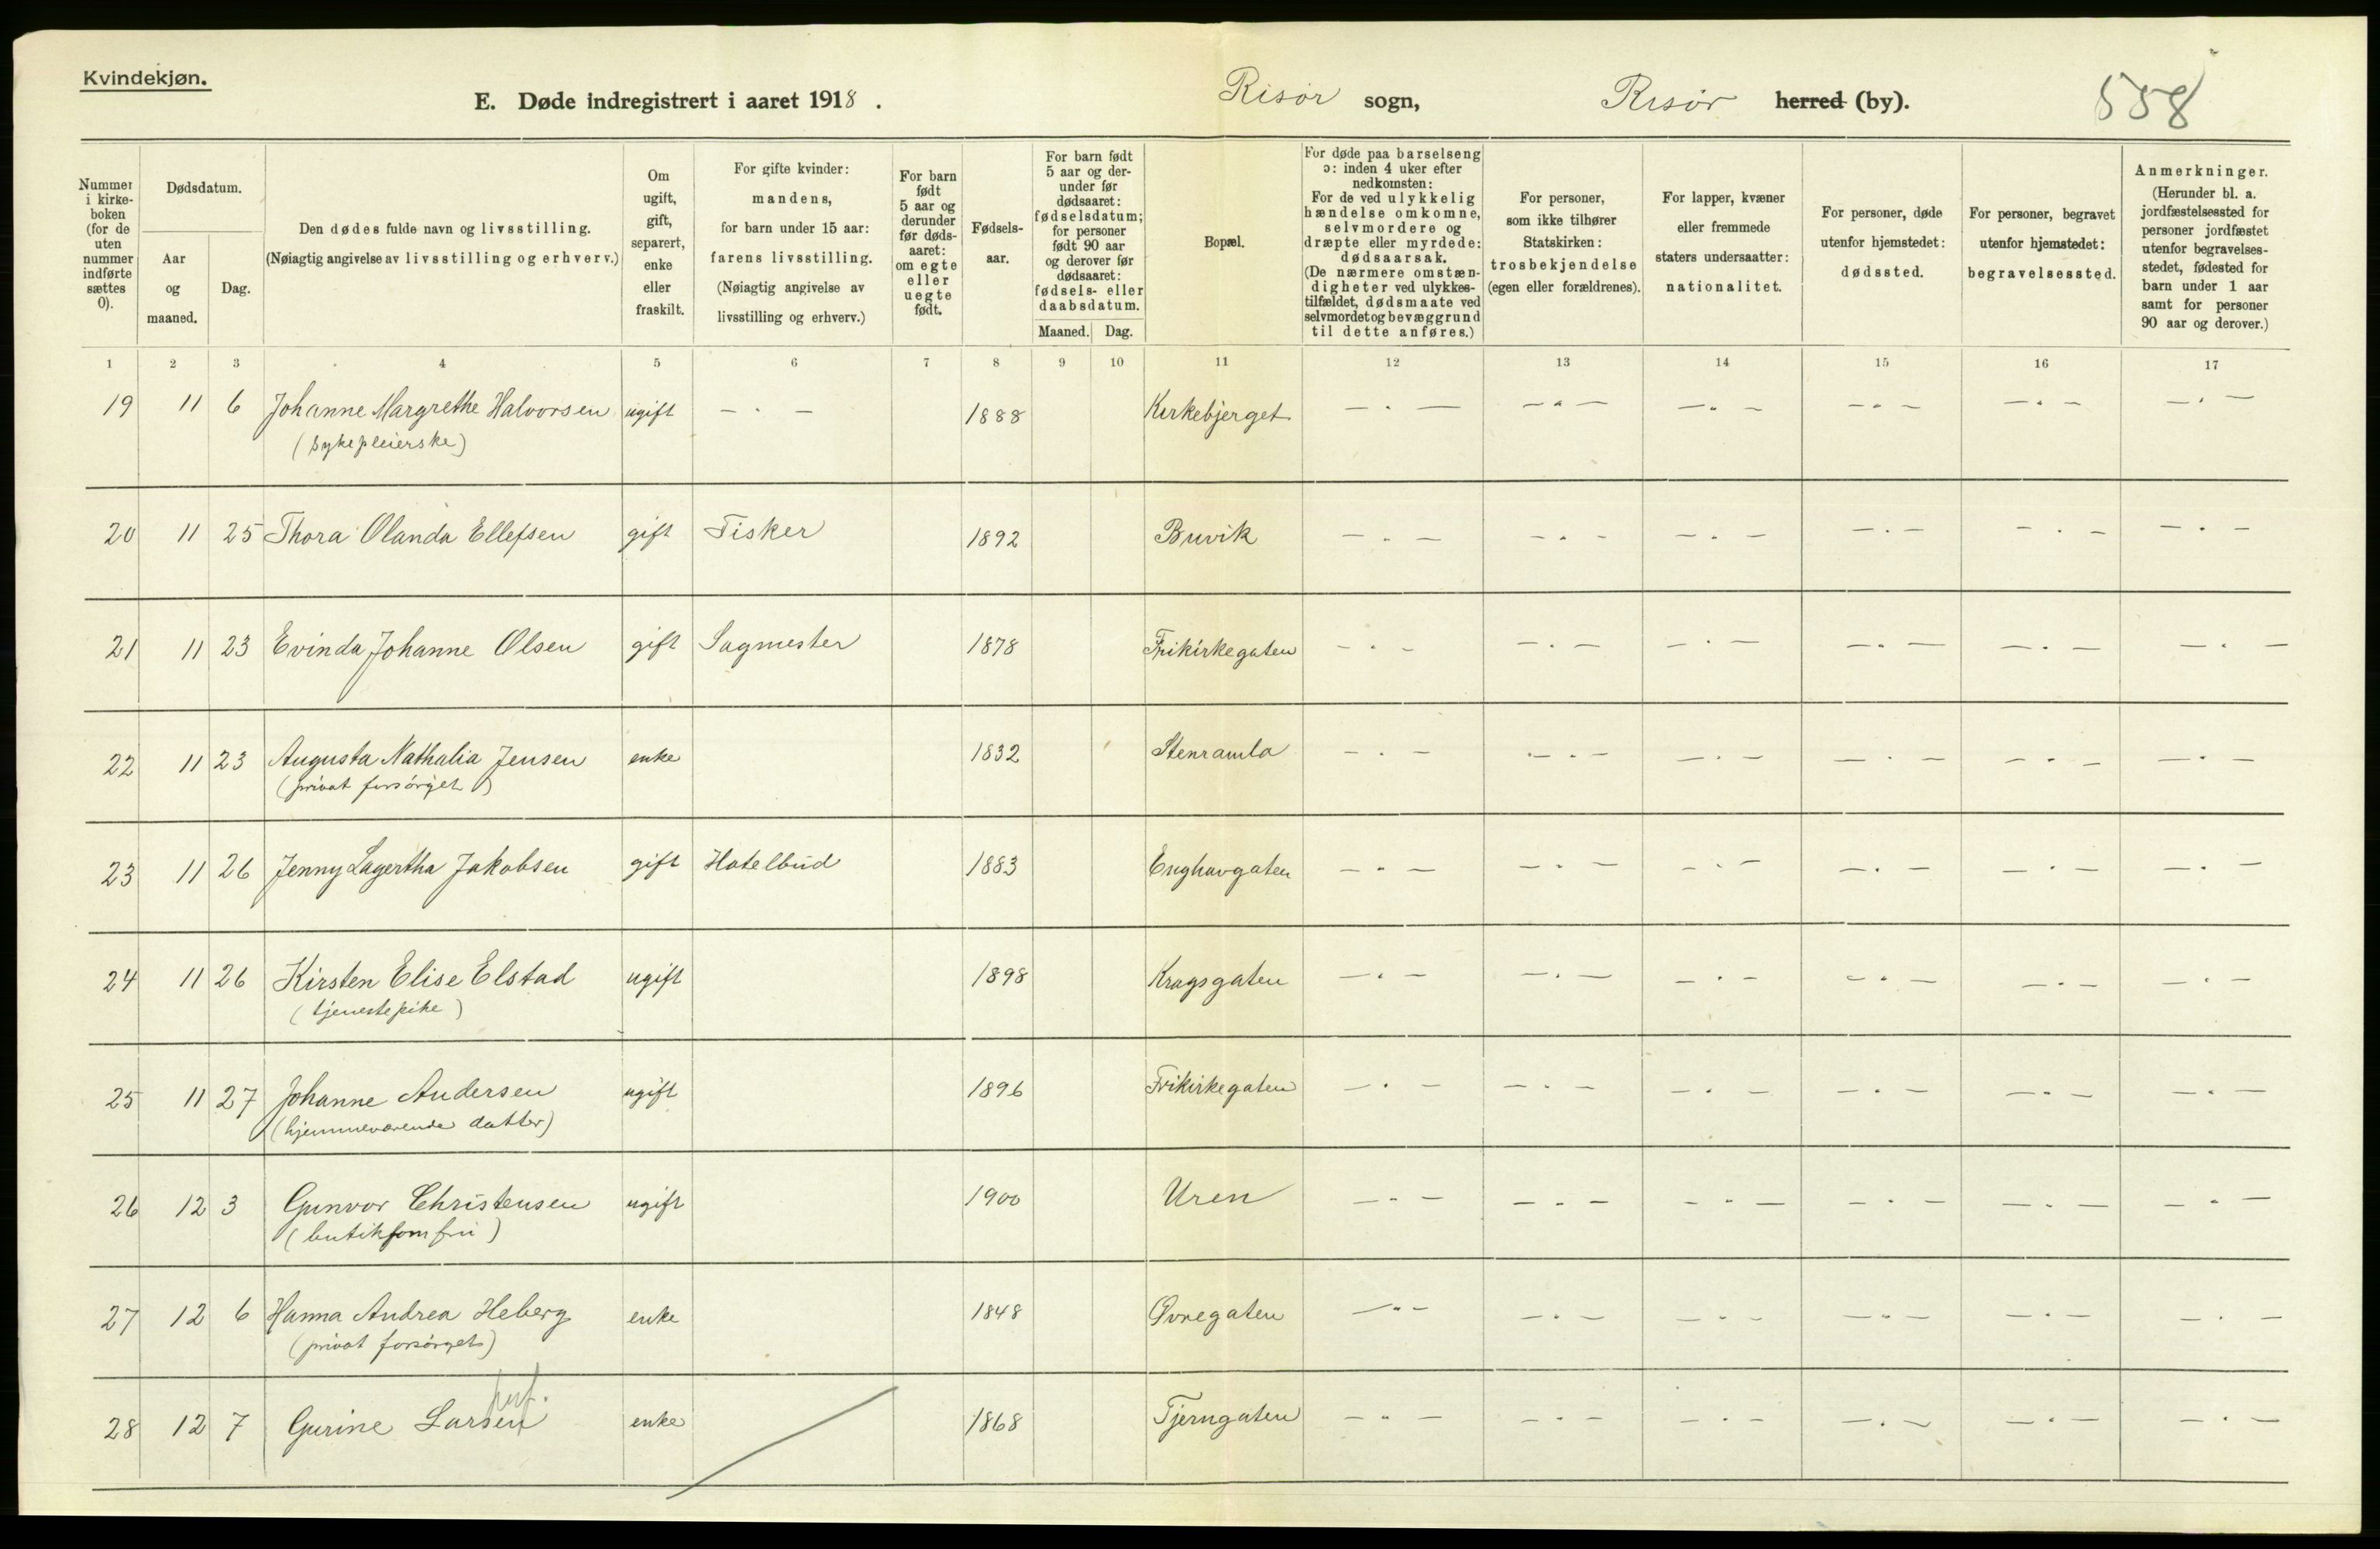 Kvindekjøn.
E. Døde indregistrert i aaret 1918 .
Risør sogn,
Risør herred (by).
558
Nummer i kirkeboken (for de uten nummer indførte sættes 0).
Dødsdatum.
Aar og maaned.
Dag.
Den dødes fulde navn og livsstilling.
(Nøiagtig angivelse av livsstilling og erhverv.)
Om ugift, gift, separert, enke eller fraskilt.
For gifte kvinder: mandens, for barn under 15 aar: farens livsstilling. (Nøiagtig angivelse av livsstilling og erhverv.)
For barn født 5 aar og derunder før dødsaaret: om egte eller uegte født.
Fødselsaar.
For barn født 5 aar og derunder før dødsaaret: fødselsdatum; for personer født 90 aar og derover før dødsaaret: fødsels- eller daabsdatum.
Maaned. Dag.
Bopæl.
For døde paa barselseng ɔ: inden 4 uker efter nedkomsten: For de ved ulykkelig hændelse omkomne, selvmordere og dræpte eller myrdede: dødsaarsak. (De nærmere omstændigheter ved ulykkestilfældet, dødsmaate ved selvmordet og bevæggrund til dette anføres.)
For personer, som ikke tilhører Statskirken: trosbekjendelse (egen eller forældrenes).
For lapper, kvæner eller fremmede staters undersaatter: nationalitet.
For personer, døde utenfor hjemstedet: dødssted.
For personer, begravet utenfor hjemstedet: begravelsessted.
Anmerkninger. (Herunder bl. a. jordfæstelsessted for personer jordfæstet utenfor begravelsesstedet, fødested for barn under 1 aar samt for personer 90 aar og derover.)
1 2 3 4 5 6 7 8 9 10 11 12 13 14 15 16 17
19 11 6 Johanne Margrethe Halvorsen ugift — . — 1888 Kirkebjerget — . — — . — — . — — . — — . — — . —
(sykepleierske)
20 11 25 Thora Olanda Ellefsen gift Fisker 1892 Buvik — . — — . — — . — — . — — . — — . —
21 11 23 Evinda Johanne Olsen gift Sagmester 1878 Frikirkegaten — . — — . — — . — — . — — . — — . —
22 11 23 Augusta Nathalia Jensen enke 1832 Stenramla — . — — . — — . — — . — — . — — . —
(privat forsørget)
23 11 26 Jenny Lagertha Jakobsen gift Hotelbud 1883 Enghavgaten — . — — . — — . — — . — — . — — . —
24 11 26 Kirsten Elise Elstad ugift 1898 Kragsgaten — . — — . — — . — — . — — . — — . —
(tjenestepike)
25 11 27 Johanne Andersen ugift 1896 Frikirkegaten — . — — . — — . — — . — — . — — . —
(hjemmeværende datter)
26 12 3 Gunvor Christensen ugift 1900 Uren — . — — . — — . — — . — — . — — . —
(butikjomfru)
27 12 6 Hanna Andrea Heberg enke 1848 Øvregaten — . — — . — — . — — . — — . — — . —
(privat forsørget)
28 12 7 Gurine Larsen enke 1868 Tjerngaten — . — — . — — . — — . — — . — — . —